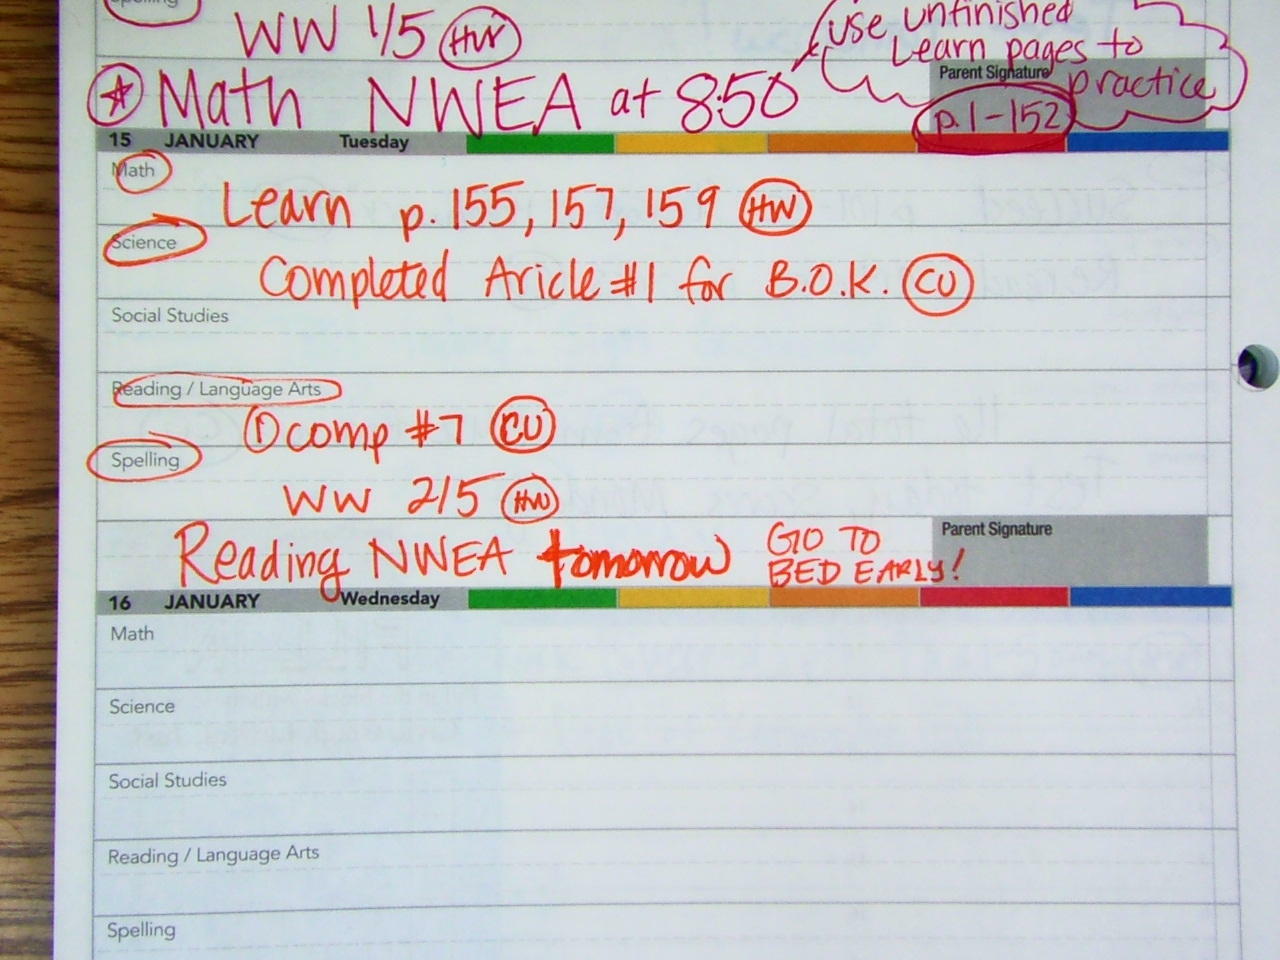 Spelling
WW 1/5 HW
use unfinished
Learn pages to
practice
Math NWEA at 8:50
Parent Signature
p. 1-152
15 JANUARY Tuesday
Math
Learn p. 155, 157, 159 HW
Science
Completed Aricle #1 for B.O.K. CU
Social Studies
Reading / Language Arts
① comp #7 CU
Spelling
WW 2/5 HW
Reading NWEA tomorrow GO TO
BED EARLY!
Parent Signature
16 JANUARY Wednesday
Math
Science
Social Studies
Reading / Language Arts
Spelling